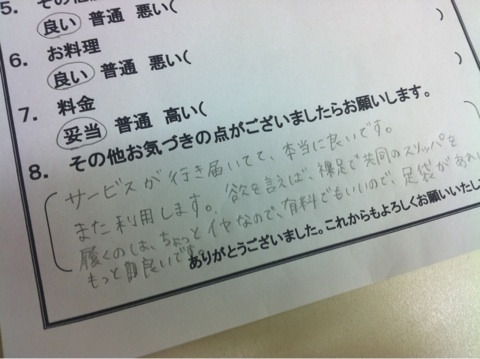 5. その他
良い 普通 悪い(
)
6. お料理
良い 普通 悪い(
)
7. 料金
妥当 普通 高い(
)
8. その他お気づきの点がございましたらお願いします。
サービスが行き届いてて、本当に良いです。
また利用します。欲を言えば、裸足で共同のスリッパを
履くのは、ちょっとイヤなので、有料でもいいので、足袋があれば
もっと良いです。
ありがとうございました。これからもよろしくお願いいたし